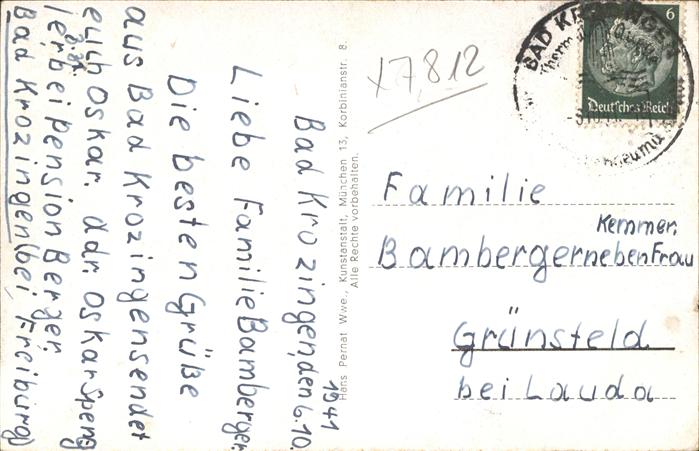 Bad Krozingen, den 6.10.
1941
Liebe Familie Bamberger.
Die besten Grüße
aus Bad Krozingen sendet
euch Oskar. Adr. Oskar Speng
ler bei Pension Berger,
Bad Krozingen (bei Freiburg)
Hans Pernat Wwe., Kunstanstalt, München 13, Korbinianstr. 8.
Alle Rechte vorbehalten.
17,8.12
6
Deutsches Reich
BAD KROZINGEN
Familie
Bamberger neben Frau
Kemmer.
Grünsfeld
bei Lauda